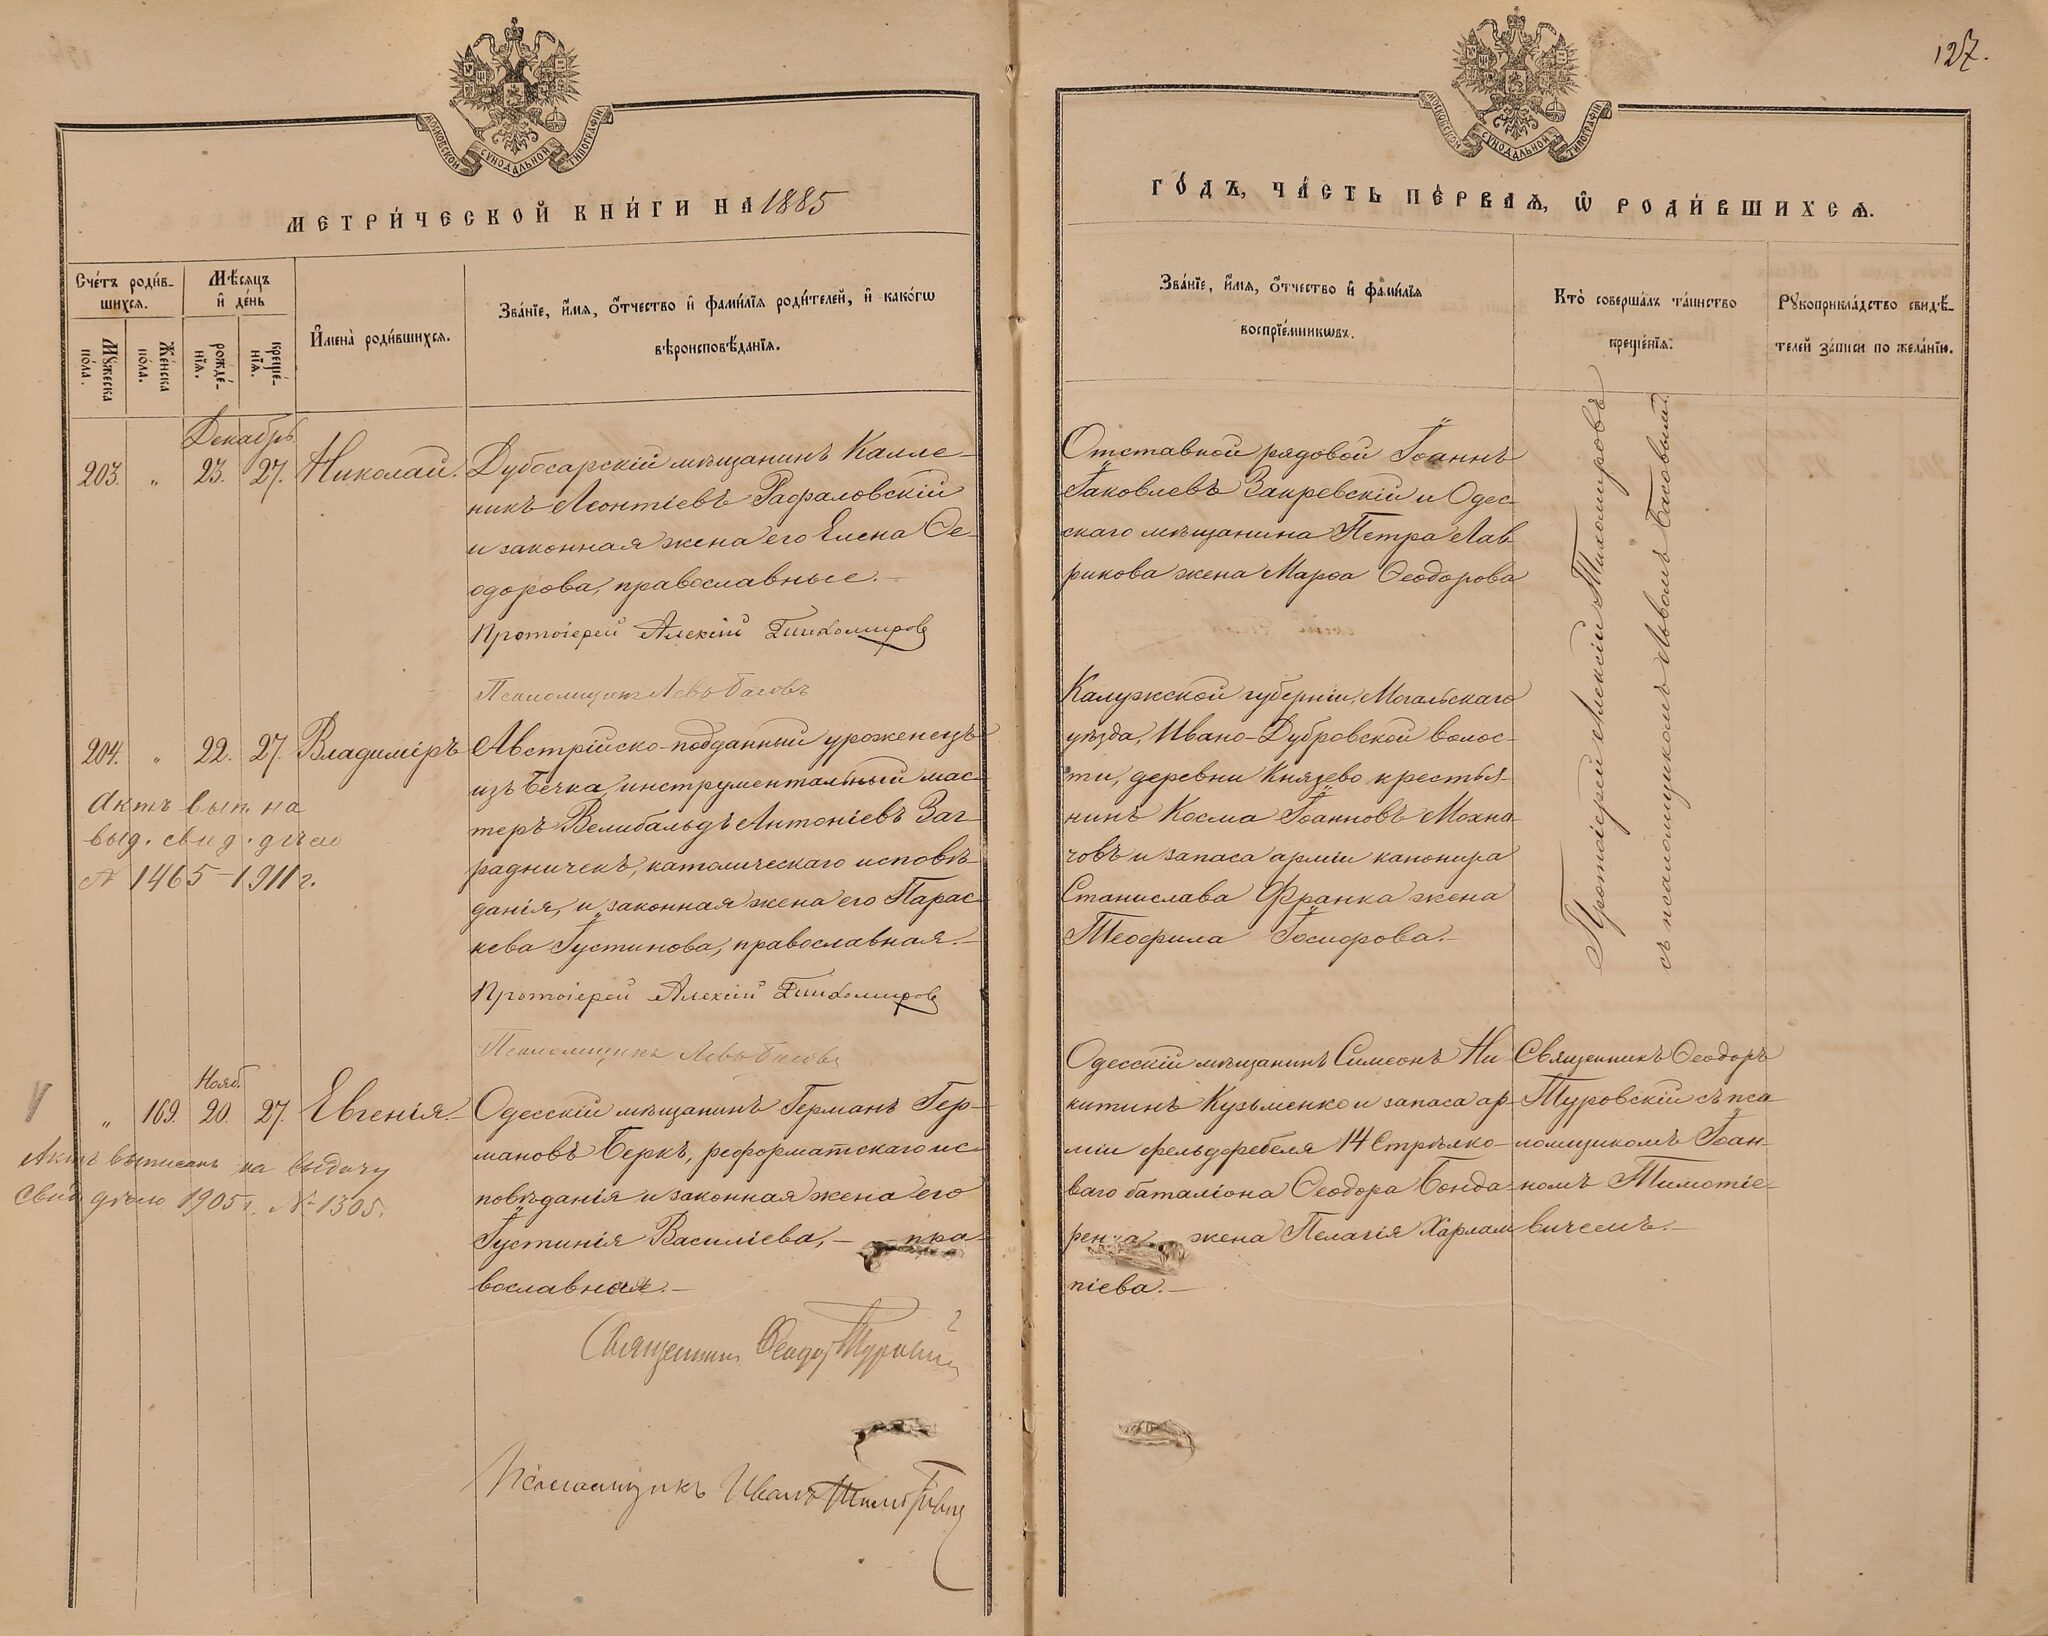 127.
МОСКОВСКОЙ СУНОДАЛЬНОЙ ТИПОГРАФІИ
МОСКОВСКОЙ СУНОДАЛЬНОЙ ТИПОГРАФІИ
МЕТРИ́ЧЕСКОЙ КНИ́ГИ НА 1885
ГО́ДЪ, ЧА́СТЬ ПЕ́РВАѦ, Ѡ РОДИ́ВШИХСѦ.
Сче́тъ роди́в-
шихсѧ.
Мꙋ́жеска по́ла.
Же́нска по́ла.
Мѣ́сѧцъ
и҆ де́нь
рожде́-
нїѧ.
креще́-
нїѧ.
И҆мена̀ роди́вшихсѧ.
Зва́нїе, и҆́мѧ, ѻ҆́тчество и҆ фами́лїѧ роди́телей, и҆ како́гѡ
вѣроисповѣ́данїѧ.
Зва́нїе, и҆́мѧ, ѻ҆́тчество и҆ фами́лїѧ
воспрїе́мникѡвъ.
Кто̀ соверша́лъ та́инство
креще́нїѧ.
Рꙋкоприкла́дство свидѣ́-
телей за́писи по жела́нїю.
Декабрь
203. " 23. 27. Николай.
Дубосарскій мѣщанинъ Калле-
никъ Леонтіевъ Рафаловскій
и законная жена его Елена Ѳе-
одорова, православные.-
Протоіерей Алексій Тихомировъ
Псаломщикъ Левъ Басовъ
Отставной рядовой Іоаннъ
Іаковлевъ Закревскій и Одес
скаго мѣщанина Петра Лав
рикова жена Марѳа Ѳеодорова
Протоіерей Алексій Тихомировъ
съ псаломщикомъ Львомъ Басовымъ.
204. " 22. 27. Владиміръ
Актъ вып. на
выд. свид. дѣло
№ 1465-1911 г.
Австрійско-подданный уроженецъ
изъ Бечка, инструментальный мас-
теръ Велибальдъ Антоніевъ Заг-
радничекъ, католическаго исповѣ-
данія, и законная жена его Парас-
кева Іустинова, православная.-
Протоіерей Алексій Тихомировъ
Псаломщикъ Левъ Басовъ
Калужской губерніи, Мосальскаго
уѣзда, Ивано-Дубровской волос-
ти, деревни Князево крестья-
нинъ Косма Іоанновъ Мохна-
човъ и запаса арміи канонира
Станислава Франка жена
Теофила Іосифова.-
Нояб.
" 169. 20. 27. Евгенія.-
Актъ выписанъ на выдачу
Свид дѣло 1905 г. № 1305.
Одесскій мѣщанинъ Германъ Гер-
мановъ Беркъ, реформатскаго ис-
повѣданія и законная жена его
Іустинія Василіева, - пра-
вославная.-
Священникъ Ѳеодоръ Туровскій
Псаломщикъ Иванъ
Одесскій мѣщанинъ Симеонъ Ни-
китинъ Кузьменко и запаса ар-
міи фельдфебеля 14 Стрѣлко-
ваго баталіона Ѳеодора Бонда-
ренка жена Пелагія Харлам
піева.-
Священникъ Ѳеодоръ
Туровскій съ пса
ломщикомъ Іоан-
номъ Тимоѳіе-
вичемъ.-